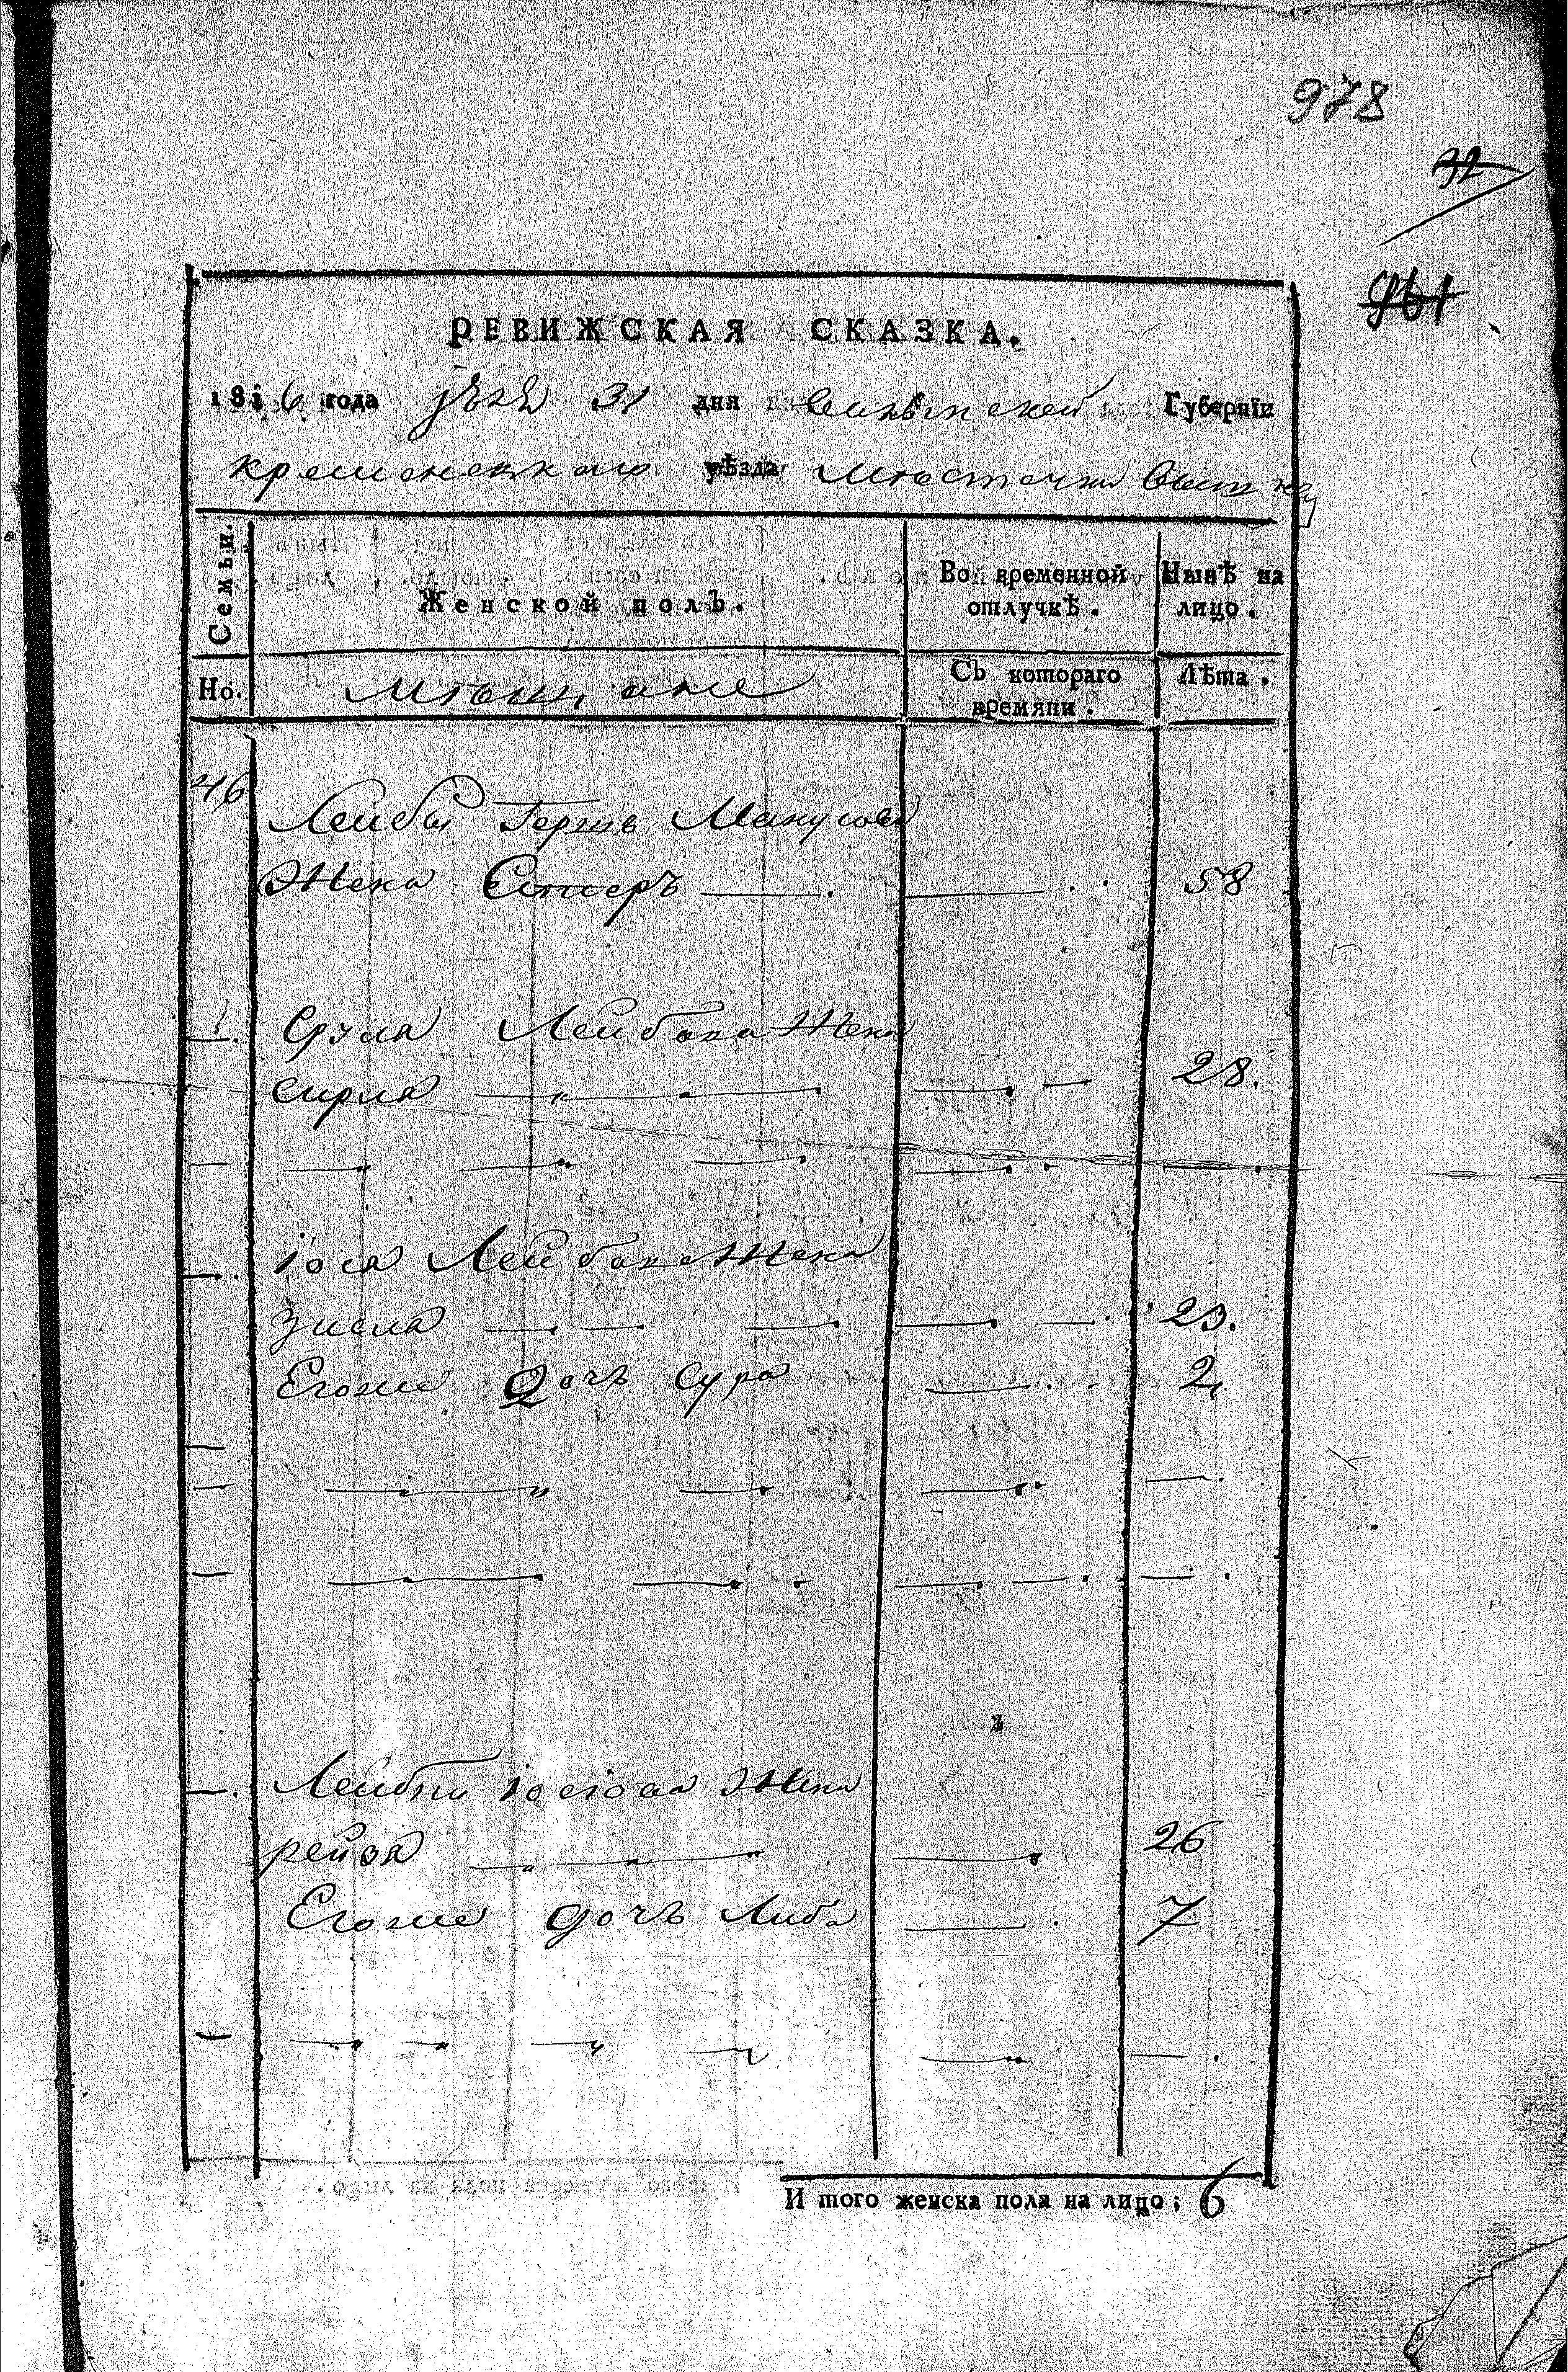 978
32
961
РЕВИЖСКАЯ СКАЗКА.
1816 года 31 дня Волынской Губернїи
кременецкаго уѣзда Мѣстечки
Семьи. Женской полъ. Во временной отлучкѣ. Нынѣ на лицо.
Но. мѣщане Съ котораго времяни. Лѣта.
46 Лейбы Герш Манусов
Жена Естеръ 58
Сруля Лейбова Жена
сирля 28.
іося Лейбова Жена
зисля 23.
Егоже Дочь сура 2
Лейбы іосіова Жена
рейзя 26
Егоже дочь Либа 7
И того женска пола на лицо; 6